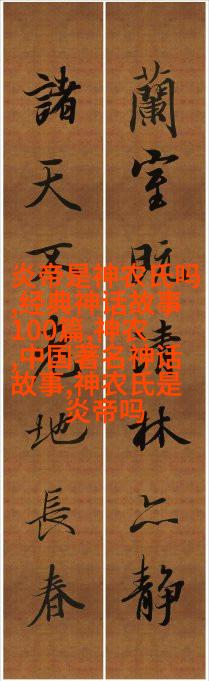 蘭室既林亦静
諸天地長春
炎帝是神农氏吗
,经典神话故事
100篇,神农
,中国著名神话
故事,神农氏是
炎帝吗